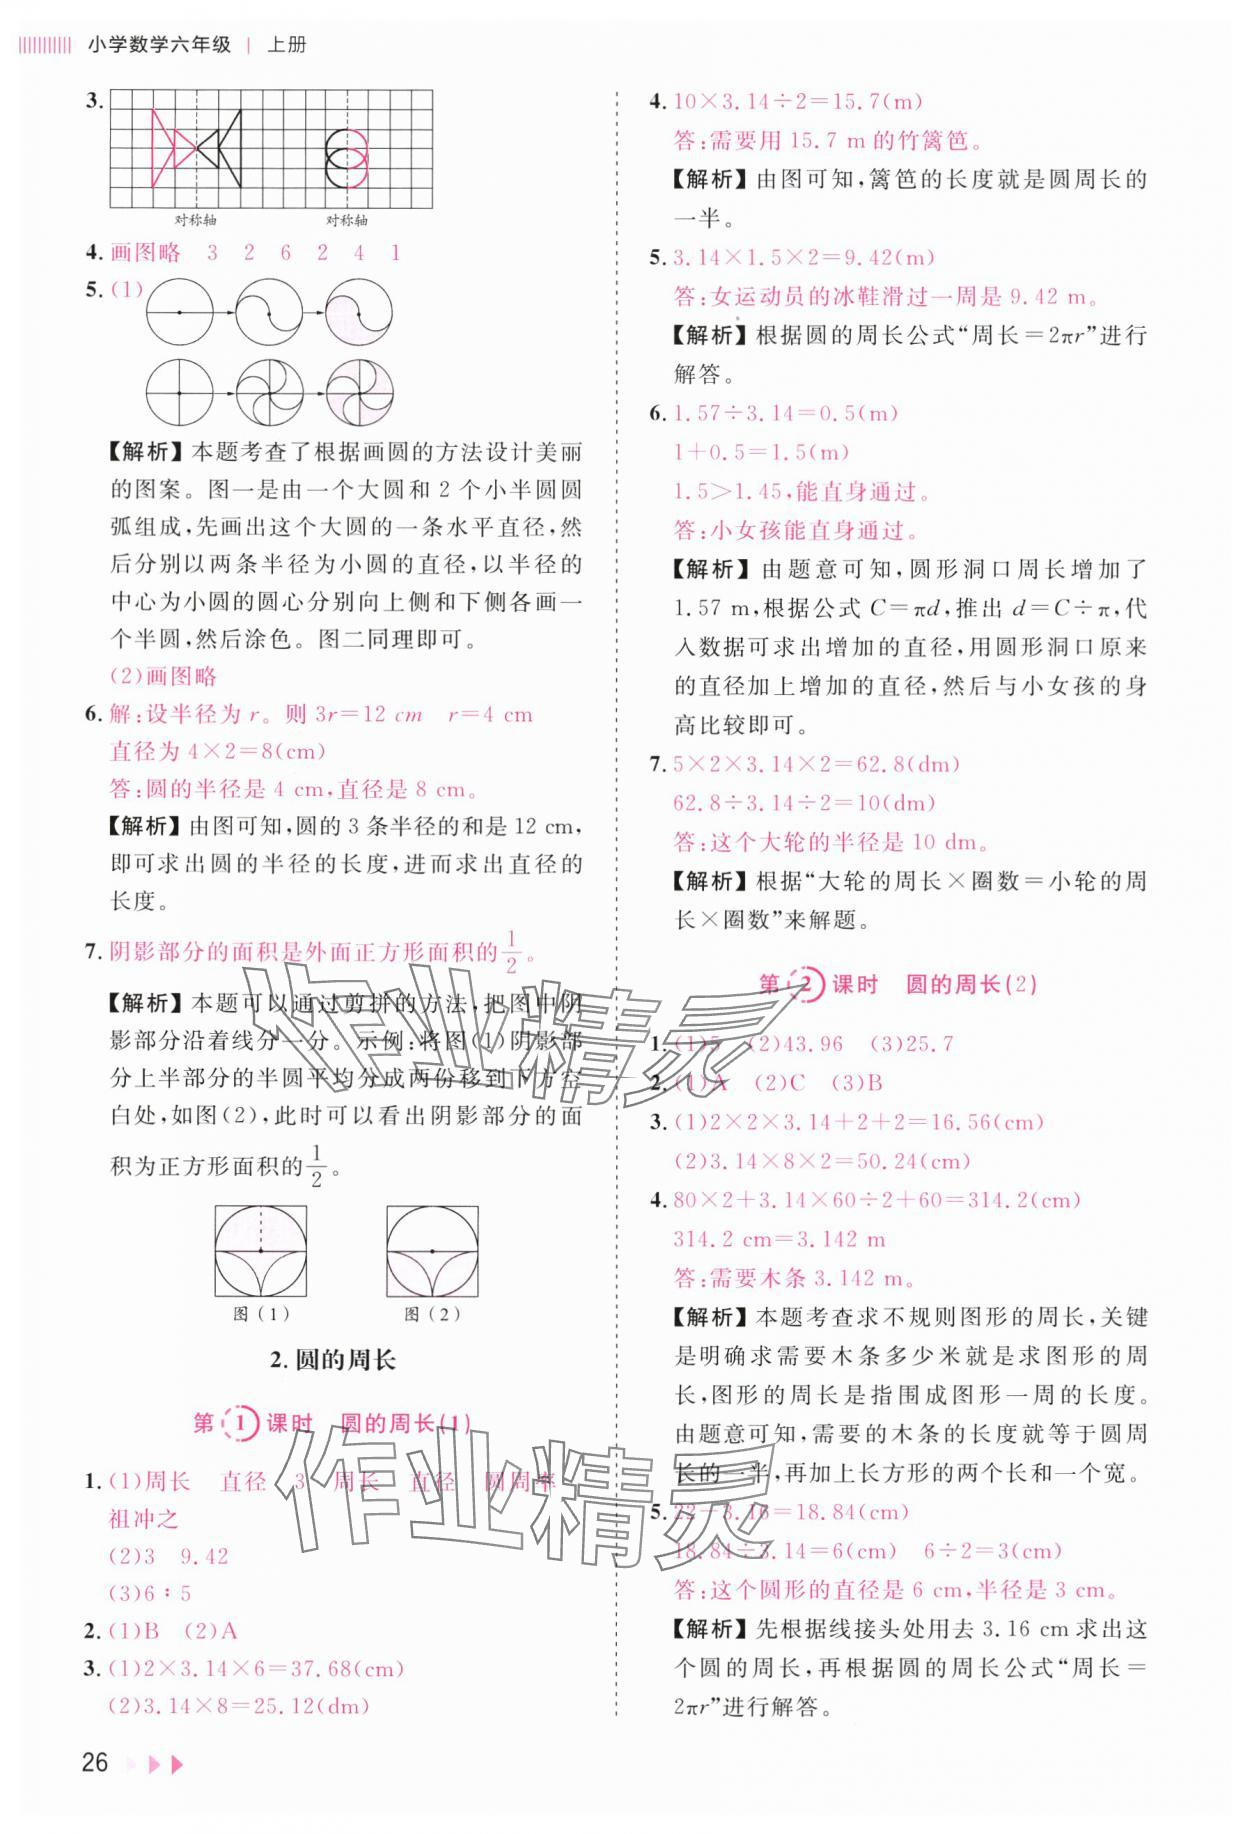 小学数学六年级 | 上册
3.
对称轴 对称轴
4. 画图略 3 2 6 2 4 1
5. (1)
【解析】本题考查了根据画圆的方法设计美丽
的图案。图一是由一个大圆和 2 个小半圆圆
弧组成,先画出这个大圆的一条水平直径,然
后分别以两条半径为小圆的直径,以半径的
中心为小圆的圆心分别向上侧和下侧各画一
个半圆,然后涂色。图二同理即可。
(2)画图略
6. 解:设半径为 r。则 3r=12 cm r=4 cm
直径为 4×2=8(cm)
答:圆的半径是 4 cm,直径是 8 cm。
【解析】由图可知,圆的 3 条半径的和是 12 cm,
即可求出圆的半径的长度,进而求出直径的
长度。
7. 阴影部分的面积是外面正方形面积的1/2。
【解析】本题可以通过剪拼的方法,把图中阴
影部分沿着线分一分。示例:将图(1)阴影部
分上半部分的半圆平均分成两份移到下方空
白处,如图(2),此时可以看出阴影部分的面
积为正方形面积的1/2。
图(1) 图(2)
2. 圆的周长
第1课时 圆的周长(1)
1. (1)周长 直径 3 周长 直径 圆周率
祖冲之
(2)3 9.42
(3)6∶5
2. (1)B (2)A
3. (1)2×3.14×6=37.68(cm)
(2)3.14×8=25.12(dm)
26
4. 10×3.14÷2=15.7(m)
答:需要用 15.7 m 的竹篱笆。
【解析】由图可知,篱笆的长度就是圆周长的
一半。
5. 3.14×1.5×2=9.42(m)
答:女运动员的冰鞋滑过一周是 9.42 m。
【解析】根据圆的周长公式“周长=2πr”进行
解答。
6. 1.57÷3.14=0.5(m)
1+0.5=1.5(m)
1.5>1.45,能直身通过。
答:小女孩能直身通过。
【解析】由题意可知,圆形洞口周长增加了
1.57 m,根据公式 C=πd,推出 d=C÷π,代
入数据可求出增加的直径,用圆形洞口原来
的直径加上增加的直径,然后与小女孩的身
高比较即可。
7. 5×2×3.14×2=62.8(dm)
62.8÷3.14÷2=10(dm)
答:这个大轮的半径是 10 dm。
【解析】根据“大轮的周长×圈数=小轮的周
长×圈数”来解题。
第2课时 圆的周长(2)
1. (1)5 (2)43.96 (3)25.7
2. (1)A (2)C (3)B
3. (1)2×2×3.14+2+2=16.56(cm)
(2)3.14×8×2=50.24(cm)
4. 80×2+3.14×60÷2+60=314.2(cm)
314.2 cm=3.142 m
答:需要木条 3.142 m。
【解析】本题考查求不规则图形的周长,关键
是明确求需要木条多少米就是求图形的周
长,图形的周长是指围成图形一周的长度。
由题意可知,需要的木条的长度就等于圆周
长的一半,再加上长方形的两个长和一个宽。
5. 22-3.16=18.84(cm)
18.84÷3.14=6(cm) 6÷2=3(cm)
答:这个圆形的直径是 6 cm,半径是 3 cm。
【解析】先根据线接头处用去 3.16 cm 求出这
个圆的周长,再根据圆的周长公式“周长=
2πr”进行解答。
作业精灵
作业精灵